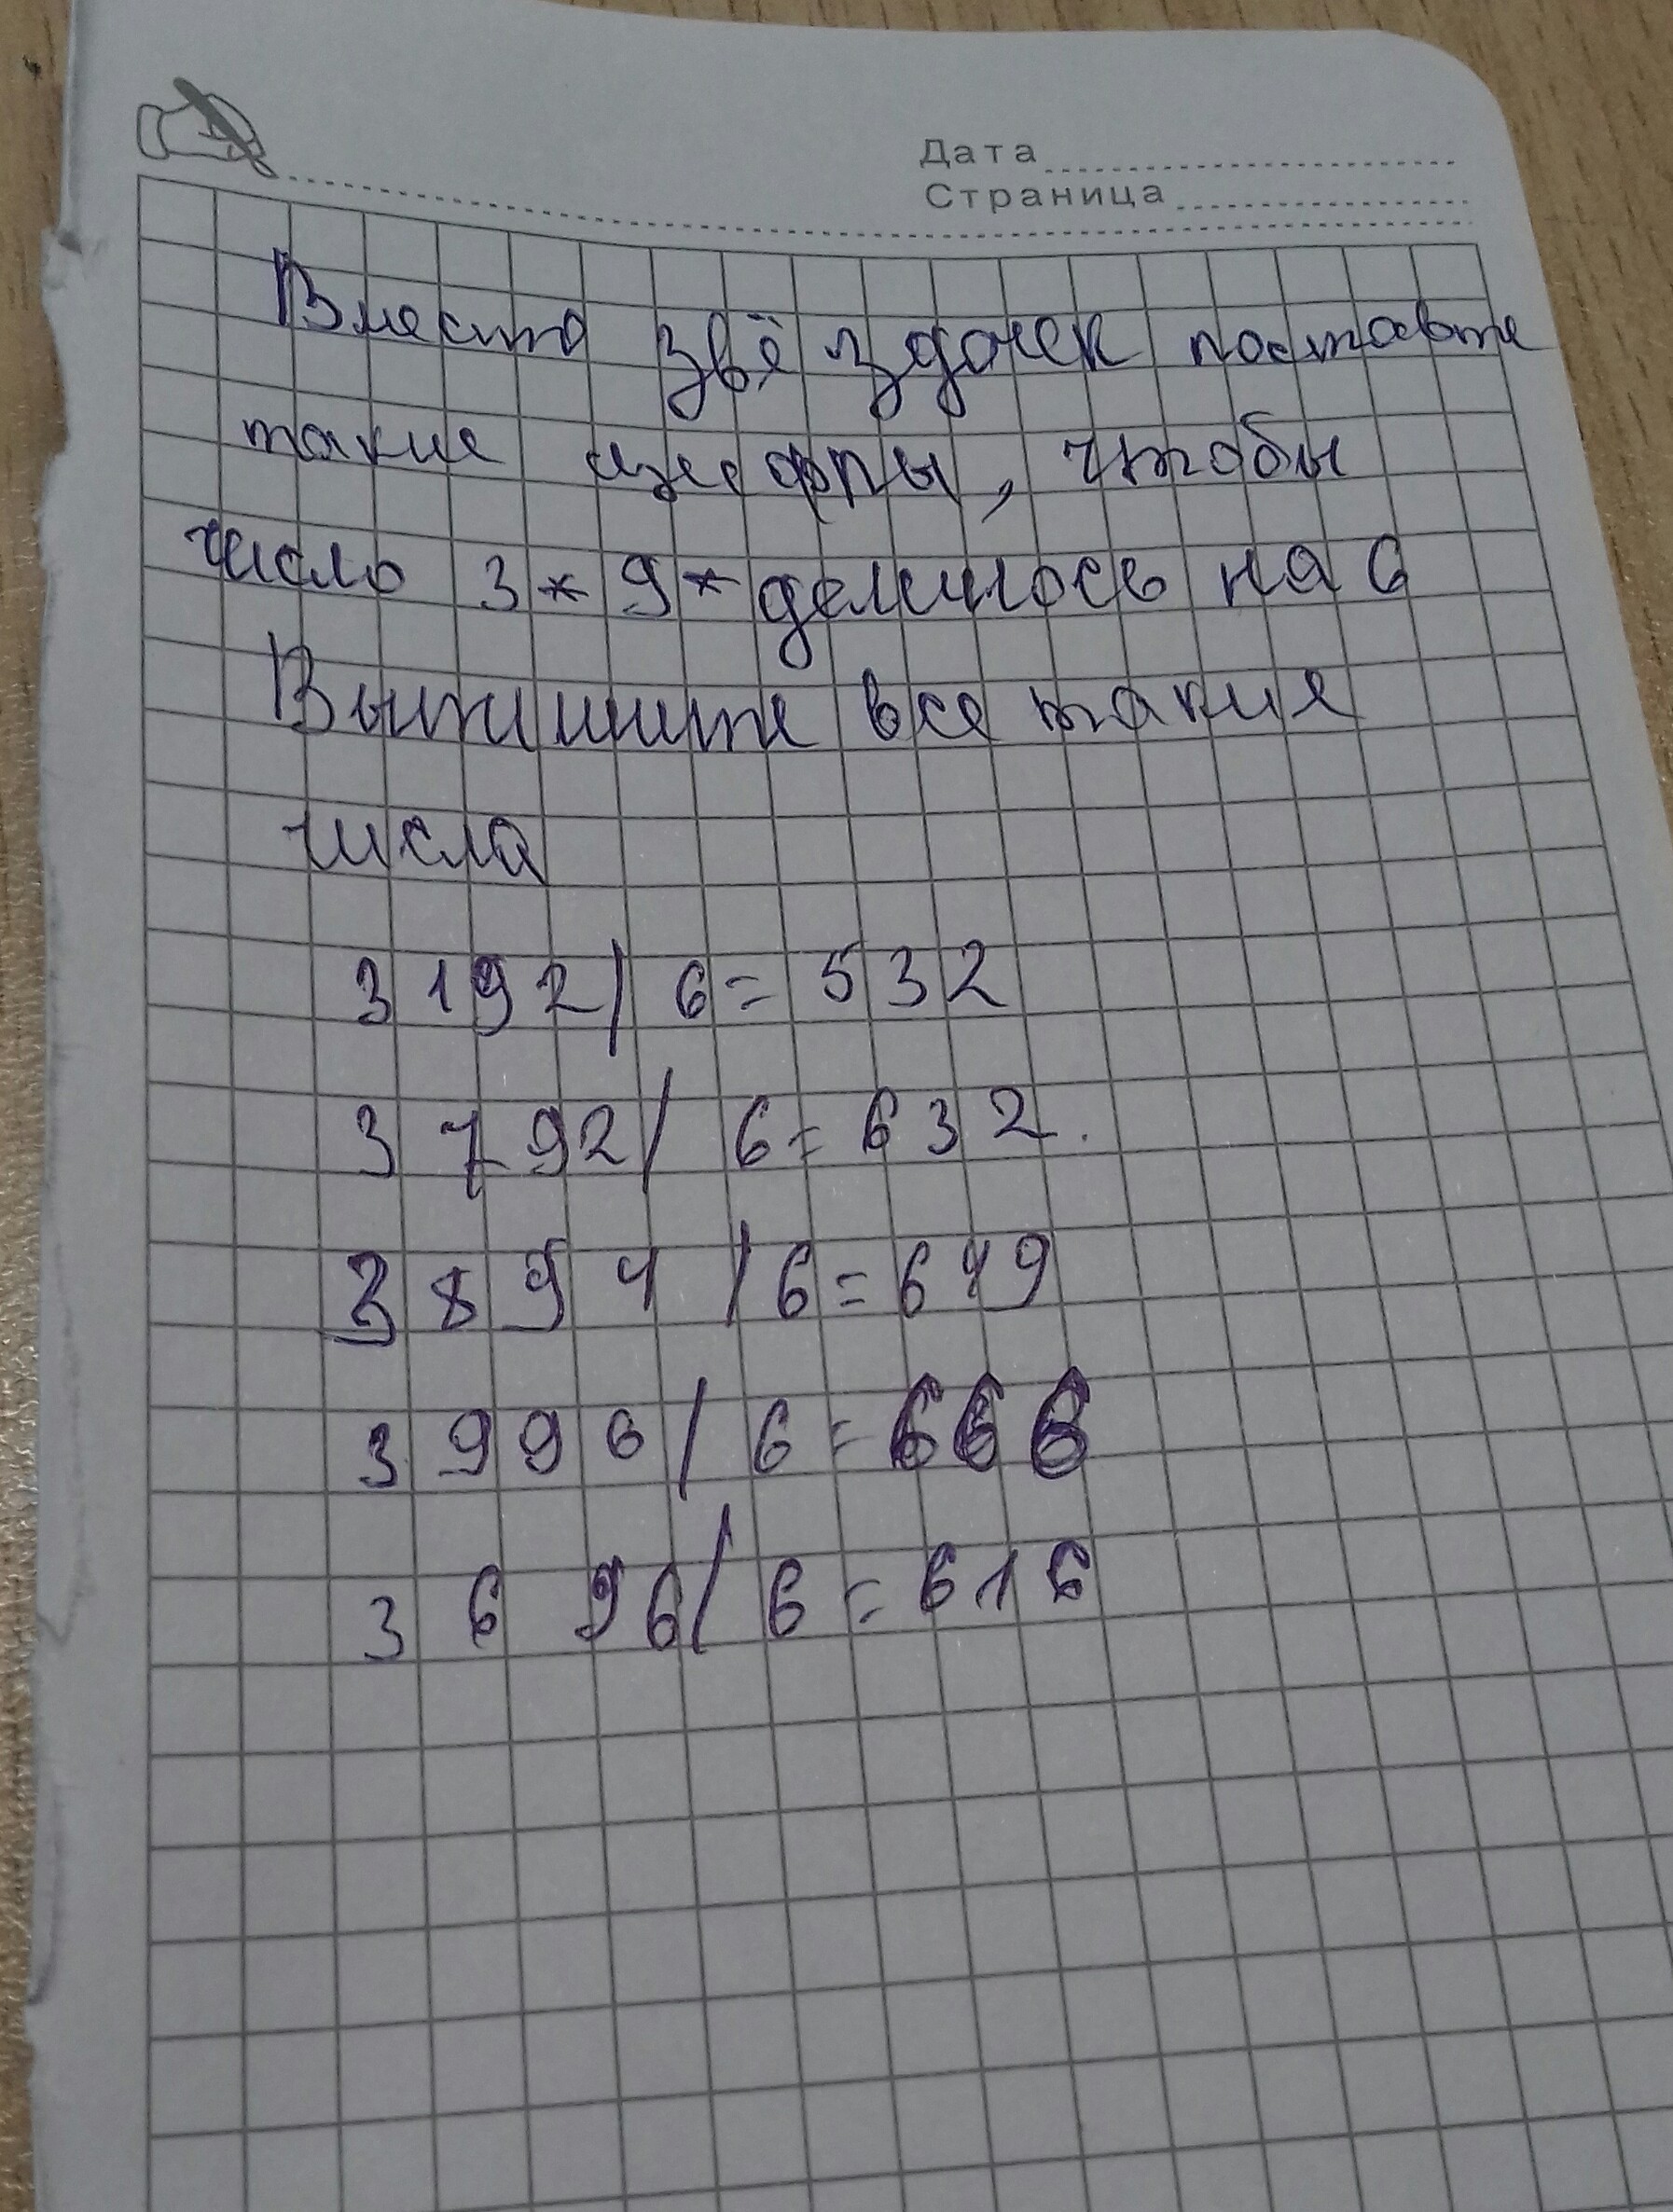 Дата
Страница
Вместо звёздочек поставте
такие цифры, чтобы
число 3*9* делилось на 6
Выпишите все такие
числа
3192/6=532
3792/6=632.
3894/6=649
3996/6=666
3696/6=616